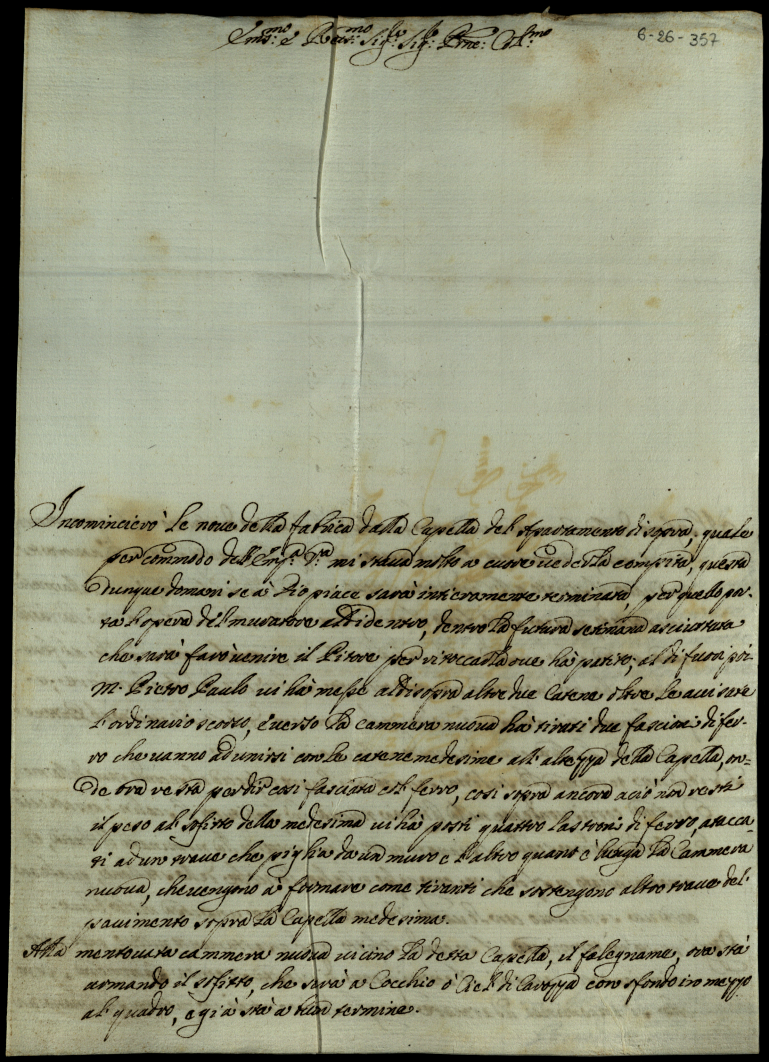 Em.mo e Reu.mo Sig.re Sig.re P.rone Col.mo
6-26-357
Incomincierò le noue della fabrica dalla Capella del Apartamento disopra, quale
per commodo dell'Em.za V.ra mi staua molto a cuore uederla compita, questa
dunque domani se à Dio piace sarà intieramente terminata, per quello por-
ta l'opera del muratore al didentro, dentro la futura setimana asciuttata
che sarà farò uenire il Pitore per ritoccarla oue hà patito; al di fuori poi
M.º Pietro Paulo ui hà messe al disopra altre due Catene oltre le auisate
l'ordinario scorso, è uerso la cammera nuoua hà tirati due fascioni di fer-
ro che uanno ad unirsi con le catene medesime all'altezza della Capella, on-
de ora resta per dir così fasciata col ferro, così sopra ancora aciò non resti
il peso al sofitto della medesima ui hà posti quattro lastroni di ferro, atacca-
ti ad un traue che piglia da un muro e l'altro quant'è larga la Cammera
nuoua, che uengono à formare come tiranti che sostengono altro traue del
pauimento sopra la Capella medesima.
Alla mentouata cammera nuoua uicino la detta Capella, il falegname, ora stà
armando il sofitto, che sarà a Cocchio ò Ciel di Carozza con sfondo in mezzo
al quadro, è già stà a bun termine.